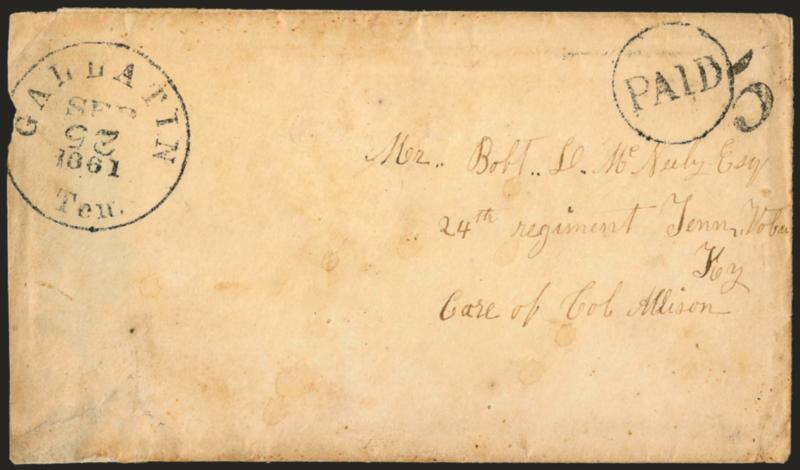 GALLATIN
SEP
25
1861
Ten.
PAID
5
Mr.. Bobt.. D. Mc Neely Esq
24th regiment Tenn, Vols
Ky
Care of Col Allison